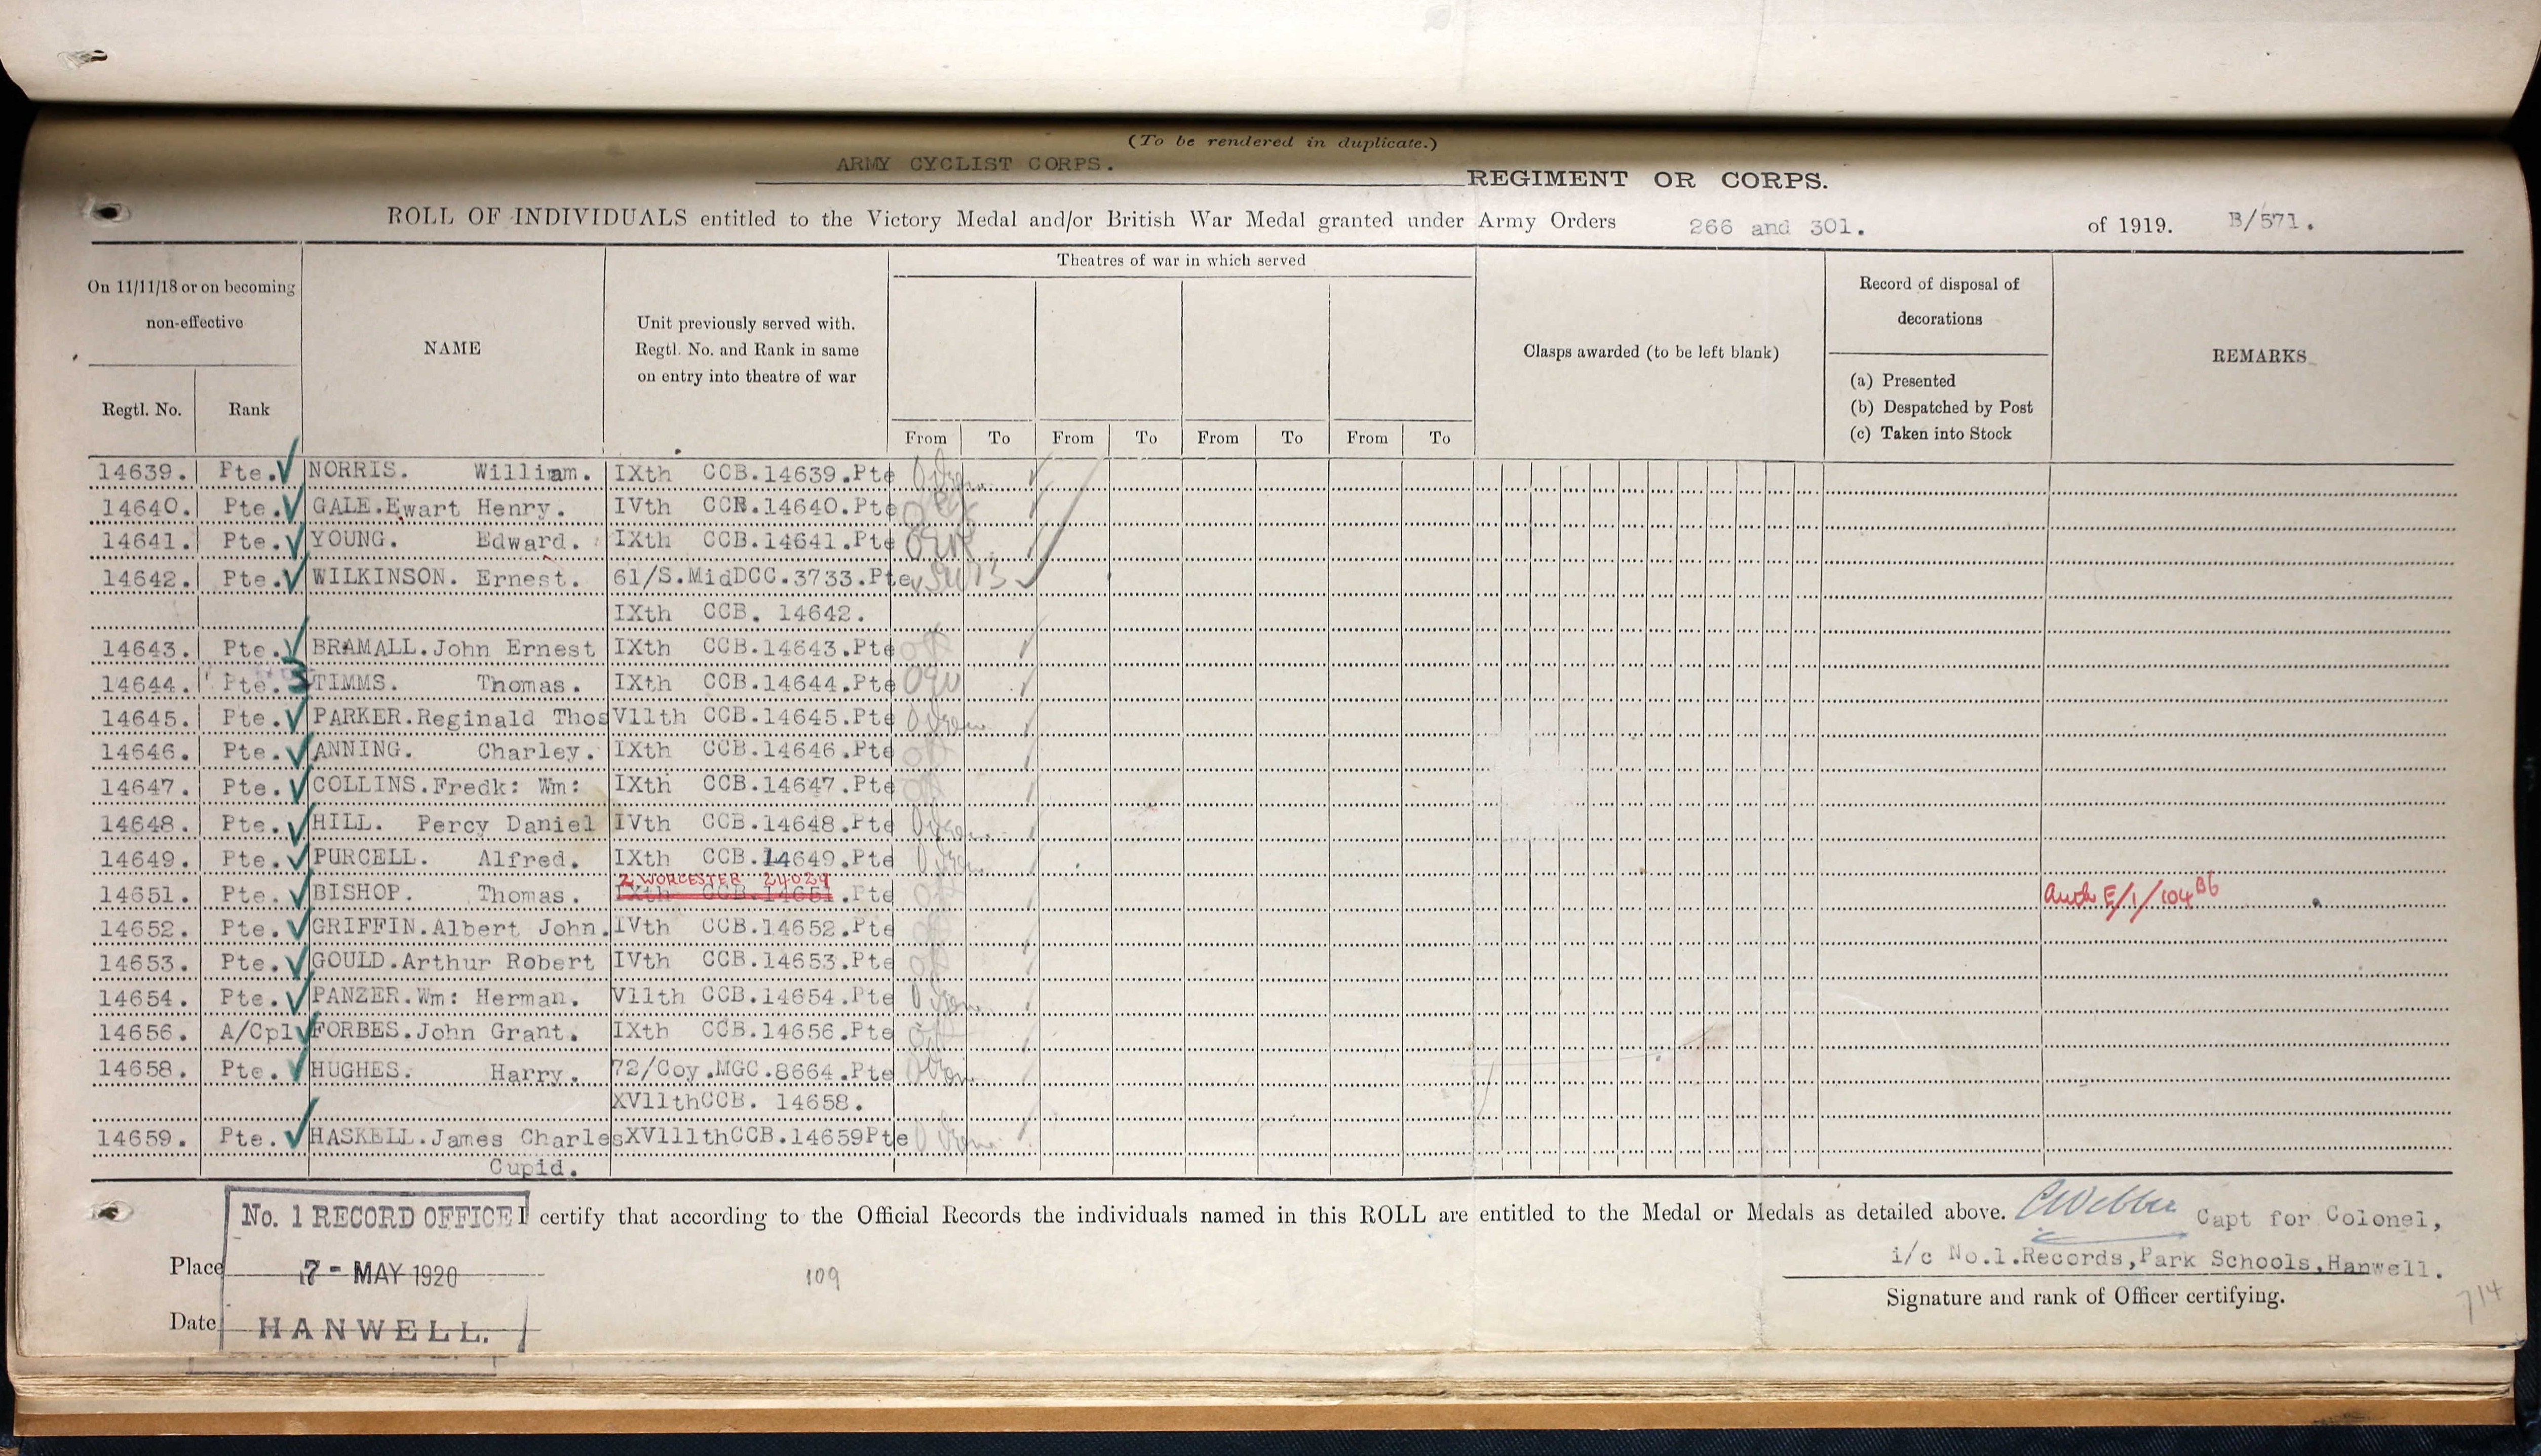 (To be rendered in duplicate.)
ARMY CYCLIST CORPS.
REGIMENT OR CORPS.
ROLL OF INDIVIDUALS entitled to the Victory Medal and/or British War Medal granted under Army Orders 266 and 301. of 1919. B/571.
On 11/11/18 or on becoming non-effective
Regtl. No.
Rank
NAME
Unit previously served with.
Regtl. No. and Rank in same
on entry into theatre of war
Theatres of war in which served
From To From To From To From To
Clasps awarded (to be left blank)
Record of disposal of
decorations
(a) Presented
(b) Despatched by Post
(c) Taken into Stock
REMARKS
14639. Pte. NORRIS. William. IXth CCB.14639.Pte
14640. Pte. GALE.Ewart Henry. IVth CCB.14640.Pte
14641. Pte. YOUNG. Edward. IXth CCB.14641.Pte
14642. Pte. WILKINSON. Ernest. 61/S.MidDCC.3733.Pte
IXth CCB. 14642.
14643. Pte. BRAMALL.John Ernest IXth CCB.14643.Pte
14644. Pte. TIMMS. Thomas. IXth CCB.14644.Pte
14645. Pte. PARKER.Reginald Thos V11th CCB.14645.Pte
14646. Pte. ANNING. Charley. IXth CCB.14646.Pte
14647. Pte. COLLINS.Fredk: Wm: IXth CCB.14647.Pte
14648. Pte. HILL. Percy Daniel IVth CCB.14648.Pte
14649. Pte. PURCELL. Alfred. IXth CCB.14649.Pte
2 WORCESTER 24029
14651. Pte. BISHOP. Thomas. IXth CCB.14651.Pte Auth E/1/104 B6
14652. Pte. GRIFFIN.Albert John. IVth CCB.14652.Pte
14653. Pte. GOULD.Arthur Robert IVth CCB.14653.Pte
14654. Pte. PANZER.Wm: Herman. V11th CCB.14654.Pte
14656. A/Cpl FORBES.John Grant. IXth CCB.14656.Pte
14658. Pte. HUGHES. Harry. 72/Coy.MGC.8664.Pte
XV11thCCB. 14658.
14659. Pte. HASKELL.James Charles XV111thCCB.14659Pte
Cupid.
No. 1 RECORD OFFICE
I certify that according to the Official Records the individuals named in this ROLL are entitled to the Medal or Medals as detailed above. CWebber Capt for Colonel,
i/c No.1.Records,Park Schools,Hanwell.
Place 7 - MAY 1920
109
Signature and rank of Officer certifying.
714
Date HANWELL.